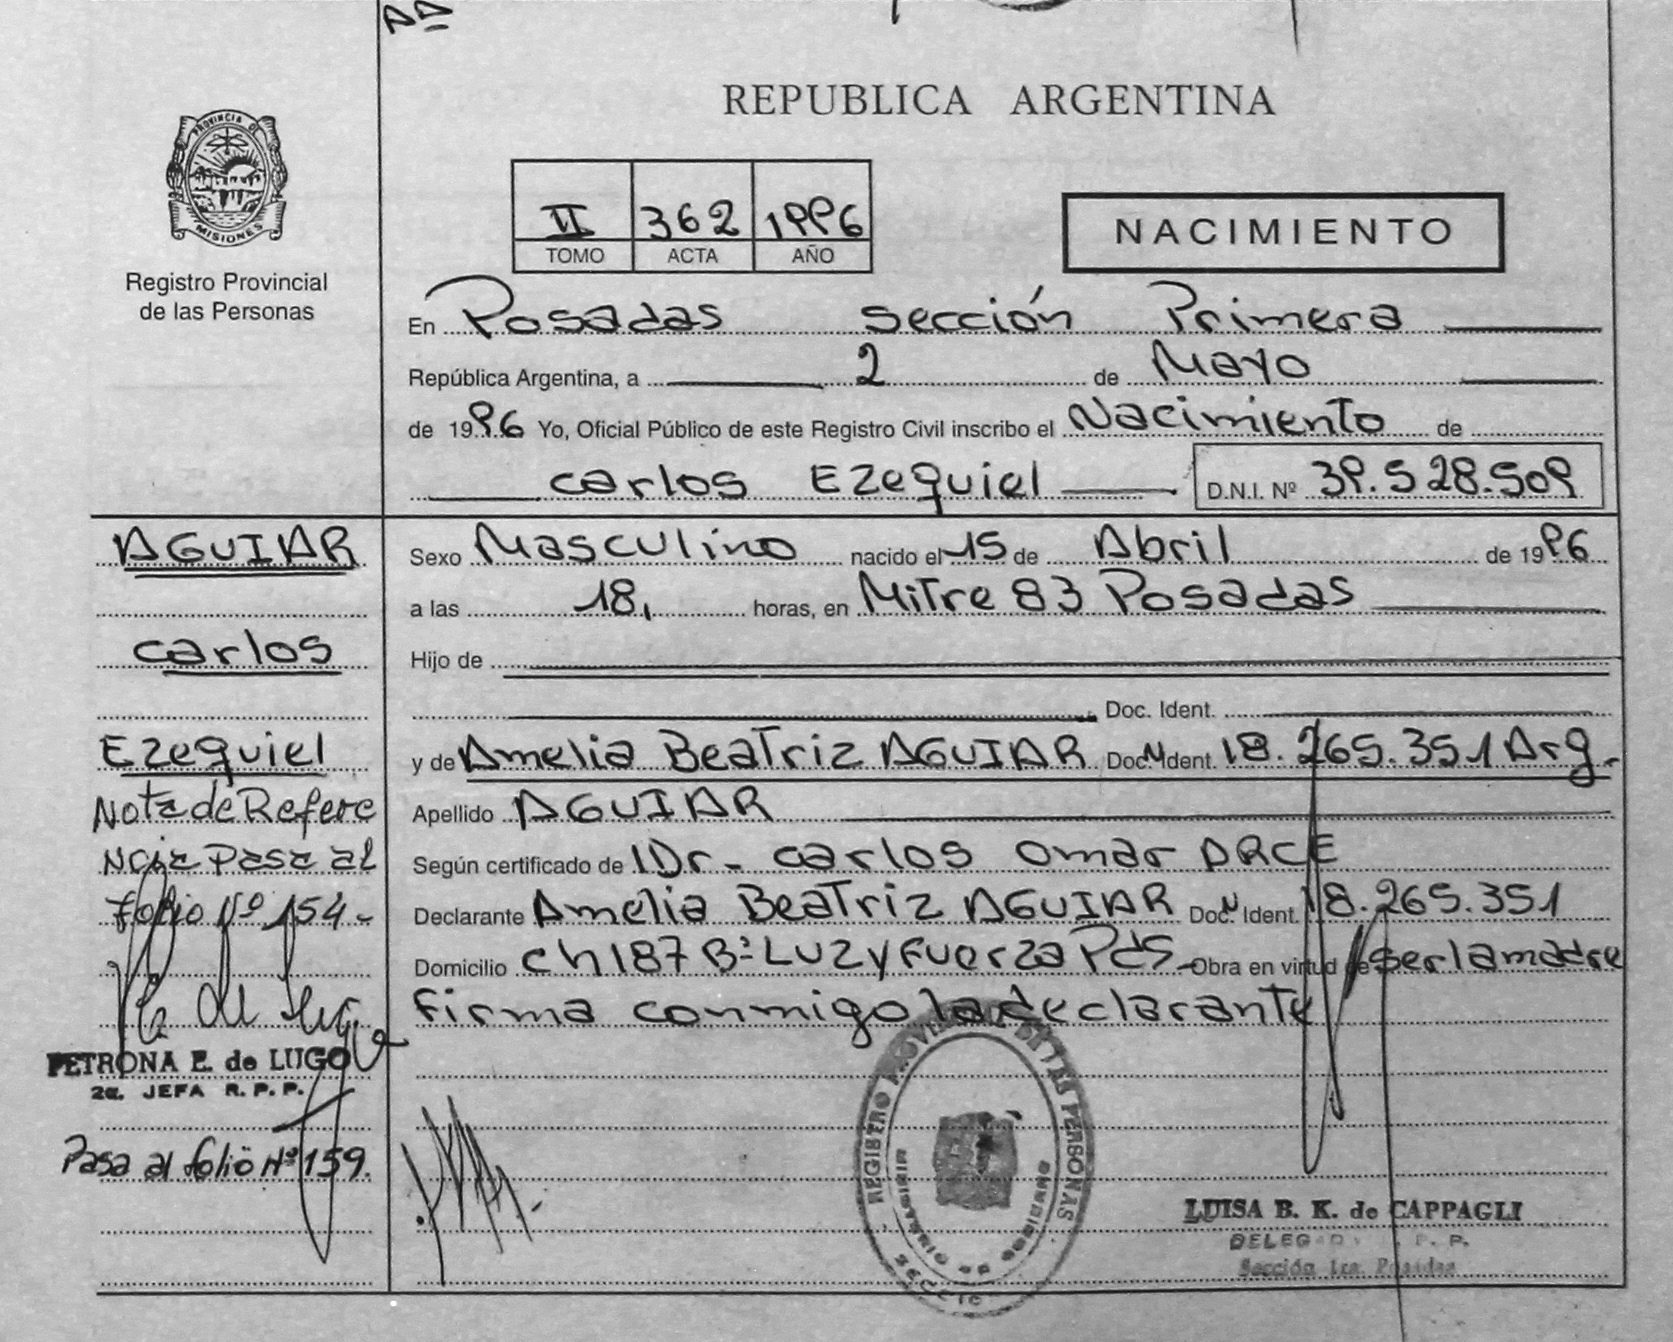 AA
REPUBLICA ARGENTINA
PROVINCIA DE
MISIONES
Registro Provincial
de las Personas
II 362 1996
TOMO ACTA AÑO
NACIMIENTO
En Posadas sección Primera
República Argentina, a 2 de Mayo
de 1996 Yo, Oficial Público de este Registro Civil inscribo el Nacimiento de
carlos Ezequiel D.N.I. Nº 39.528.509
AGUIAR
carlos
Ezequiel
Nota de Refere
ncia Pasa al
folio Nº 154.-
PETRONA E. de LUGO
2a. JEFA R. P. P.
Pasa al folio Nº 159.
Sexo Masculino nacido el 15 de Abril de 1996
a las 18, horas, en Mitre 83 Posadas
Hijo de
Doc. Ident.
y de Amelia Beatriz AGUIAR Doc. N Ident. 18.265.351 Arg.
Apellido AGUIAR
Según certificado de Dr- carlos omar ARCE
Declarante Amelia Beatriz AGUIAR Doc. N Ident. 18.265.351
Domicilio ch 187 Bº Luz y Fuerza Pds - Obra en virtud de ser la madre
firma conmigo la declarante
REGISTRO PROVINCIAL DE LAS PERSONAS
SECCIO
LUISA B. K. de CAPPAGLI
DELEGADA R. P. P.
Sección 1ra. Posadas